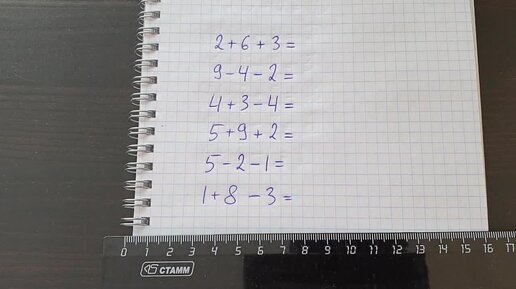 2+6+3=
9-4-2=
4+3-4=
5+9+2=
5-2-1=
1+8-3=
0 1 2 3 4 5 6 7 8 9 10 11 12 13 14 15 16 17
СТАММ